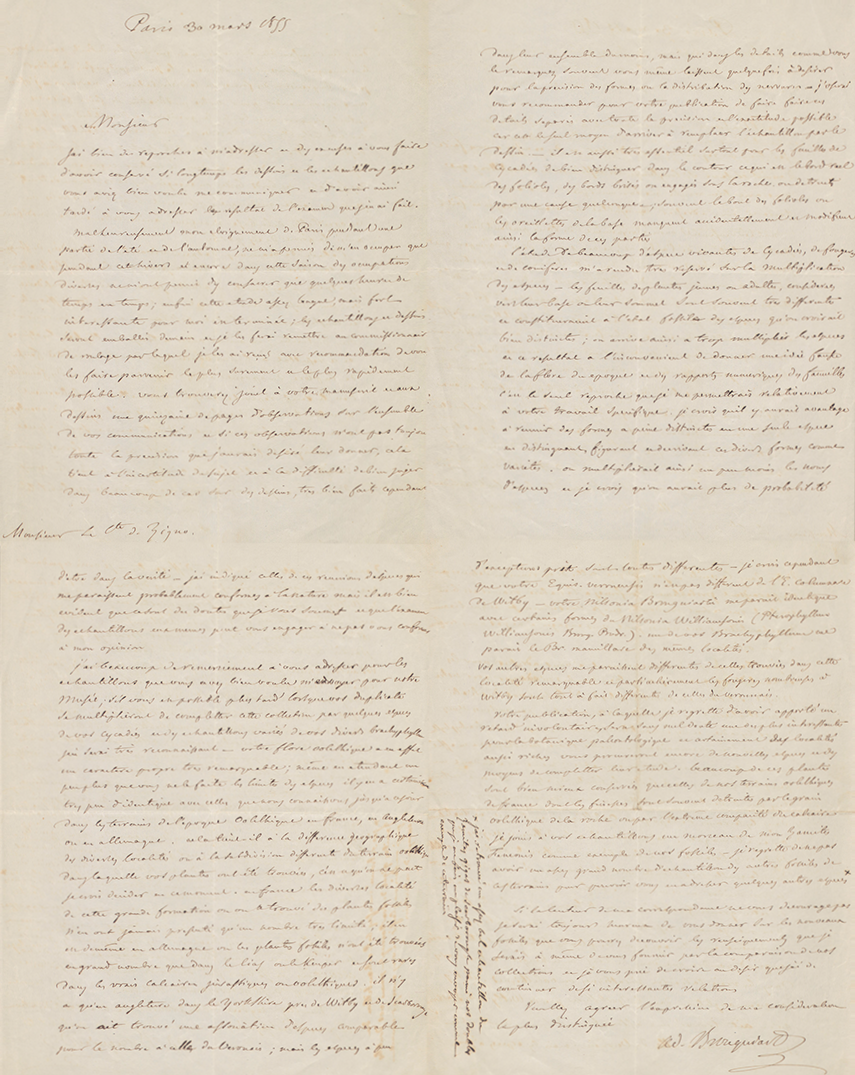 Paris 30 mars 1855
Monsieur
J'ai bien de reproches à m'adresser et des excuses à vous faire
d'avoir conservé si longtemps les dessins et les echantillons que
vous aviez bien voulu me communiquer et d'avoir ainsi
tardé à vous adresser le resultat de l'examen que j'en ai fait.
Malheureusement mon eloignement de Paris pendant une
partie de l'été et de l'automne, ne m'a permis de m'en occuper que
pendant cet hiver et encore dans cette saison des occupations
diverses ne m'ont permis d'y consacrer que quelques heures de
temps en temps; enfin cette etude assez longue, mais fort
interessante pour moi est terminée; les echantillons et dessins
seront emballés demain et je les ferai remettre au commissionnaire
de roulage par lequel je les ai reçus avec recommandation de vous
les faire parvenir le plus surement et le plus rapidement
possible. vous trouverez joint à votre manuscrit et aux
dessins une quinzaine de pages d'observations sur l'ensemble
de vos communications et si ces observations n'ont pas toujours
toute la precision que j'aurais desiré leur donner, cela
tient à l'incertitude du sujet et à la difficulté de bien juger
dans beaucoup de cas sur des dessins, tres bien faits cependant
Monsieur le Cte de Zigno.
dans leur ensemble du moins, mais qui dans les details comme vous
le remarquez souvent vous même laissent quelquefois à desirer
pour la precision des formes ou la distribution des nervures – j'oserai
vous recommander pour votre publication de faire faire ces
details separés avec toute la precision et l'exactitude possible
car c'est le seul moyen d'arriver à remplacer l'echantillon par le
dessin – il est aussi tres essentiel surtout pour les feuilles de
Cycadées de bien distinguer dans le contour ce qui est le bord reel
des folioles, des bords brisés ou engagés sous la roche ou detruits
par une cause quelconque; souvent le bout des folioles ou
les oreillettes de la base manquent accidentellement et modifient
ainsi la forme de ces parties
L'etude de beaucoup d'especes vivantes de Cycadées, de fougères
et de conifères m'a rendu tres reservé sur la multiplication
des especes – les feuilles des plantes jeunes ou adultes, considerées
vers leur base ou leur sommet sont souvent tres differentes
et constitueraient à l'etat fossile des especes qu'on croirait
bien distinctes; on arrive ainsi à trop multiplier les especes
et ce resultat a l'inconvenient de donner une idée fausse
de la flore d'une epoque et des rapports numeriques des familles
c'est le seul reproche que je me permettrais relativement
à votre travail specifique. je crois qu'il y aurait avantage
à reunir des formes à peine distinctes en une seule espece
en distinguant, figurant et decrivant ces diverses formes comme
varietés. on multiplierait ainsi un peu moins les noms
d'especes et je crois qu'on aurait plus de probabilité
d'etre dans la verité – j'ai indiqué celles de ces reunions d'especes qui
me paraissent probablement conformes à la nature mais il est bien
evident que ce sont des doutes que je vous soumets et que l'examen
des echantillons eux memes peut vous engager à ne pas vous conformer
à mon opinion
J'ai beaucoup de remerciements à vous adresser pour les
echantillons que vous avez bien voulu m'envoyer pour notre
Musée; s'il vous est possible plus tard lorsque vos duplicata
se multiplieront de completter cette collection par quelques especes
de vos Cycadées et des echantillons variés de vos divers brachyphyllum
j'en serai tres reconnaissant – votre flore oolithique a en effet
un caractère propre tres remarquable; même en etendant un
peu plus que vous ne le faites les limites des especes il y en a certainement
tres peu d'identique avec celles que nous connaissons jusqu'à ce jour
dans les terrains de l'époque Oolithique en france, en Angleterre
ou en allemagne. cela tient-il à la difference geographique
des diverses localités ou à la subdivision differente du terrain oolithique
dans laquelle vos plantes ont été trouvées, c'est ce qu'on ne peut
je crois decider en ce moment. en france les diverses localités
de cette grande formation où on a trouvé des plantes fossiles
n'en ont jamais presenté qu'un nombre tres limité; il en
est de même en allemagne où les plantes fossiles n'ont été trouvées
en grand nombre que dans le lias ou le Keuper et sont rares
dans les vrais calcaires jurassiques ou oolithiques. il n'y
a qu'en angleterre dans le Yorkshire près de Witby et de Scarborough
qu'on ait trouvé une association d'especes comparable
pour le nombre à celles du Veronais; mais les especes à peu
d'exceptions près sont toutes differentes – je crois cependant
que votre Equis. veronense n'est pas different de l'E. columnare
de Witby – votre Nilsonia Brongniarti me parait identique
avec certaines formes du Nilsonia Williamsonis (Pterophyllum
Williamsonis Brong. Prodr.). un de vos Brachyphyllum me
parait le Br. mamillare des mêmes localités.
Vos autres especes me paraissent differentes de celles trouvées dans cette
localité remarquable et particulièrement les fougeres nombreuses à
Witby sont tout à fait differentes de celles du veronais.
Votre publication, à laquelle je regrette d'avoir apporté un
retard involontaire, sera sans nul doute une des plus interessantes
pour la botanique paleontologique et certainement des localités
aussi riches vous procureront encore de nouvelles especes et des
moyens de completter leur etude. beaucoup de ces plantes
sont bien mieux conservées que celles de nos terrains oolithiques
de france dont les finesses sont souvent detruites par le grain
oolithique de la roche ou par l'extreme compacité du calcaire
je joins à vos echantillons un morceau de mon Zamites
comme exemple de nos fossiles – je regrette de ne pas
avoir un assez grand nombre d'echantillons des autres fossiles de
ces terrains pour pouvoir vous en adresser quelques autres especes ×
Si la lenteur de ma correspondance ne vous decourage pas
je serai toujours heureux de vous donner sur les nouveaux
fossiles que vous pourrez decouvrir les renseignements que je
serais à même de vous fournir par la comparaison de nos
collections et je vous prie de croire au desir que j'ai de
continuer de si interessantes relations
Veuillez agréer l'expression de ma consideration
la plus distinguée
ad. Brongniart
× j'ai retrouvé un assez bel echantillon de
Zamites gigas de Scarborough parmi nos doubles